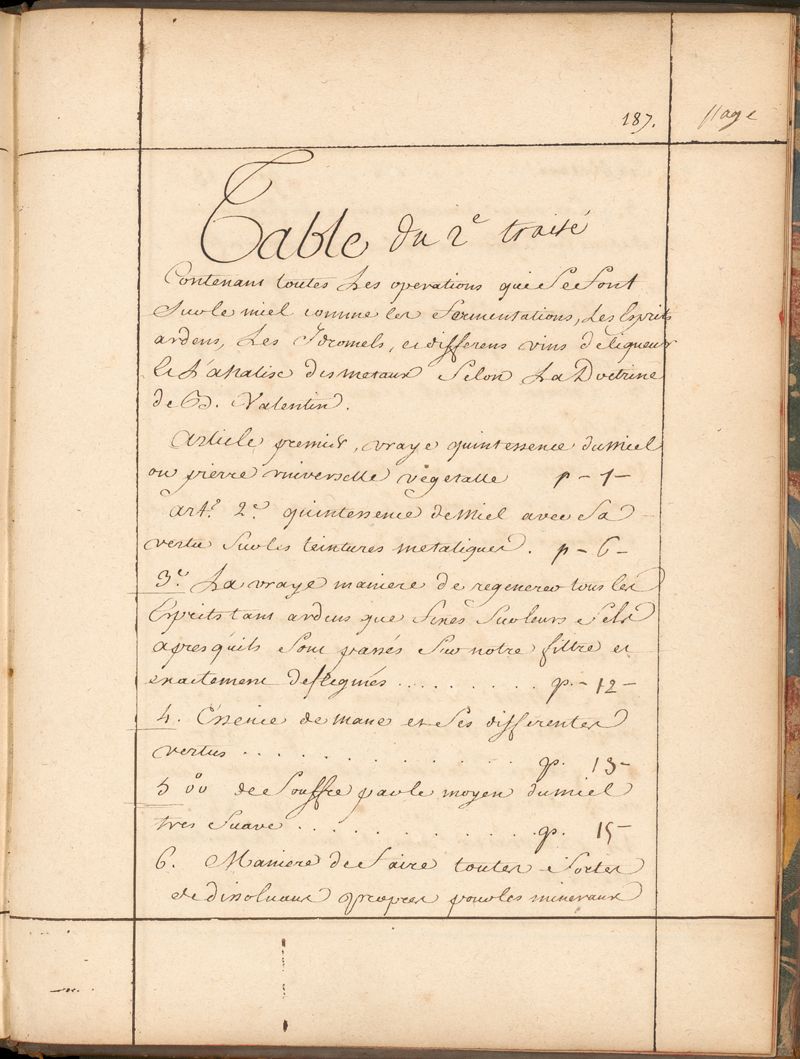 187. page
Table du 2e traité
Contenant toutes Les operations qui se font
sur le miel comme les fermentations, Les Esprits
ardens, Les Idromels, et differens vins de liqueur
et L'analise des metaux selon La Doctrine
de B. Valentin.
Article premier, vraye quintessence du miel
ou pierre universelle vegetalle p - 1 -
art.e 2.e quintessence de miel avec sa
vertu sur les teintures metaliques. p - 6 -
3.e La vraye maniere de regenerer tous les
Esprits tant ardens que finés sur leurs sels
apres quils sont passés sur notre filtre et
exactement deflegmés . . . . . . . . . p. - 12 -
4. Essence de mane et ses differentes
vertus . . . . . . . . . . . p. 13 -
5 de souffre par le moyen du miel
tres suave . . . . . . . . . . p. 15 -
6. Maniere de faire toutes sortes
de dissolvans propres pour les mineraux